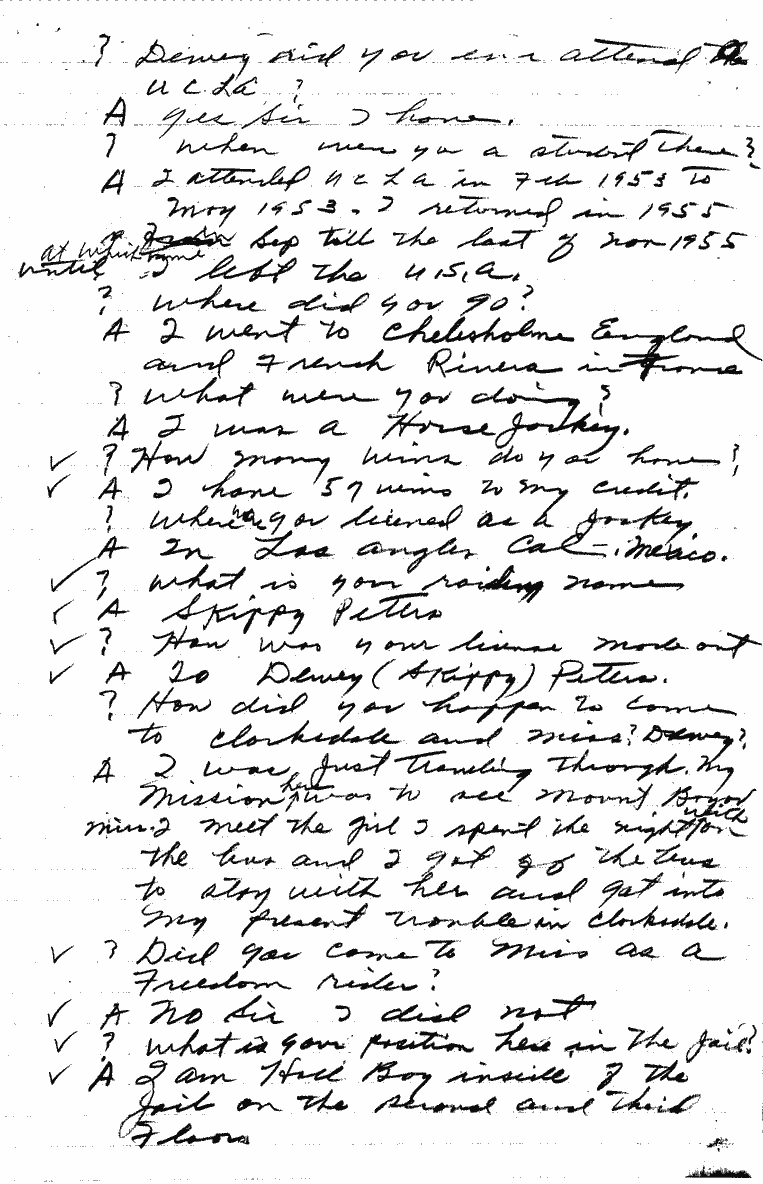 ? Dewey did you ever attend the
UCLA ?
A yes Sir I have.
? when were you a student there?
A I attended UCLA in Feb 1953 to
May 1953. I returned in 1955
in Sep till the last of nov 1955
at which time
until I left the U.S.A.
? where did you go?
A I went to Chelesholme England
and French Rivera in France
? what were you doing?
A I was a Horse Jockey.
✓ ? How many wins do you have?
✓ A I have 57 wins to my credit.
? where were you licened as a Jockey.
A In Los angles Cal. Mexico.
✓ ? what is your raiding name
✓ A Skippy Peters
✓ ? How was your license made out
✓ A To Dewey (Skippy) Peters.
? How did you happen to come
to clarksdale and miss? Dewey?
A I was Just traveling through. My
Mission here was to see Mount Bayou
miss. I meet the girl I spent the night with on
the bus and I got of the bus
to stay with her and got into
my present trouble in clarksdale.
✓ ? Did you come to Miss as a
Freedom rider?
✓ A No Sir I did not
✓ ? what is your position here in the Jail?
✓ A I am Hall Boy inside of the
Jail on the second and third
Floors